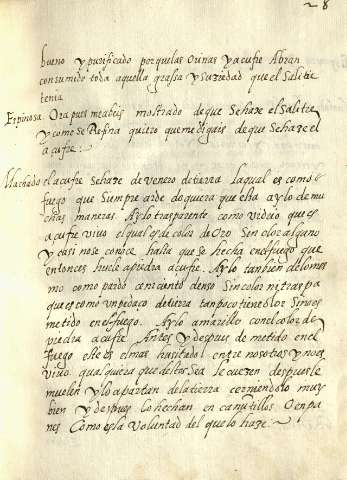 28
bueno y purificado porque las orinas y açufre abran
consumido toda aquella grassa y suziedad que el salitre
tenia
Espinosa. Ora pues me abeis mostrado de que se haze el salitre
y como se Refina quiero que me digais de que se haze el
açufre:
Machado el açufre se haze de venero de tierra la qual es como
fuego que siempre arde do quiera que esta ay lo de mu
chas maneras. Ay lo trasparente como vidrio que es
açufre vivo el qual es de color de Oro sin olor alguno
y casi no se conoce hasta que se hecha en el fuego que
entonces huele a piedra açufre. Ay lo tanbien de lo mes
mo como pardo ceniciento denso sin color ni traspa
que es como un pedaço de tierra tanpoco tiene olor sin ser
metido en el fuego. Ay lo amarillo con el color de
piedra açufre. Antes y despues de metido en el
fuego este es el mas husitado entre nosotros y no es
vivo. qualquiera que destos sea le cuezen despues le
muelen y lo apartan de la tierra cerniendolo muy
bien y despues lo hechan en canutillos O en pa
nes Como es la voluntad del que lo haze.